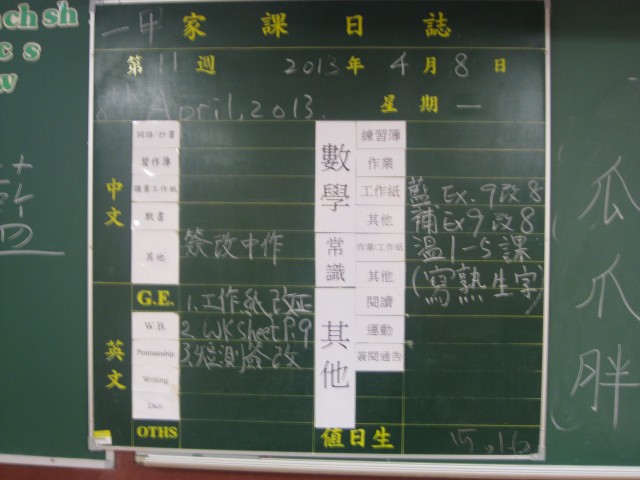 一甲 家課日誌
第 11 週 2013年 4月 8日
April, 2013. 星期 一
中文
詞語/抄書
習作簿
默書
其他
簽改中作
G.E.
1.工作紙改正
英文
W.B.
2.WKSheet P.9
Penmanship
Writing
Dict
OTHS
數學
練習簿
作業
工作紙
藍 Ex.9改8
其他
補Ex9改8
常識
作業/工作紙
溫1-5課
其他
(寫熟生字)
其他
閱讀
運動
簽閱通告
值日生
15, 16
瓜
爪
胖
藍